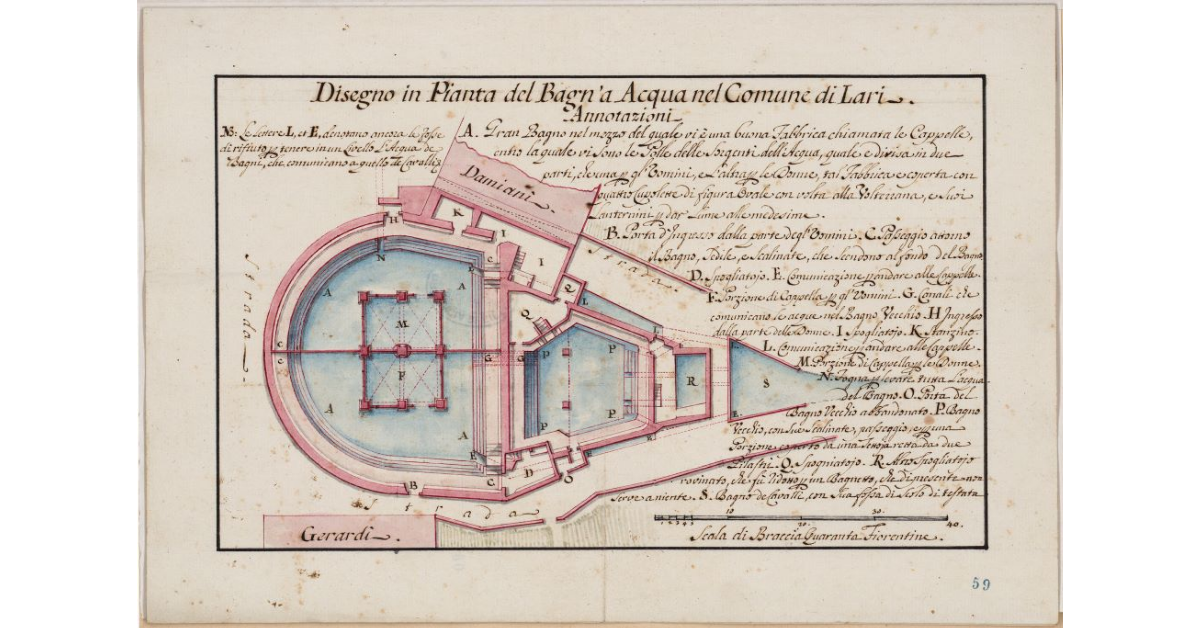 Disegno in Pianta del Bagn'a Acqua nel Comune di Lari.
Annotazioni
NB: Le Lettere L, et E, denotano ancora le fosse
di rifiuto p tenere in un livello l'Acqua de
Bagni, che comunicano a quello de Cavalli.
A. Gran Bagno nel mezzo del quale vi è una buona Fabbrica chiamata le Cappelle,
entro la quale vi sono le Polle delle Sorgenti dell'Acqua, quale e divisa in due
parti, che una p gl'Uomini, e l'altra p le Donne, tal Fabbrica e coperta con
quattro Cupolette di figura Ovale con volta alla Volterrana, e suoi
Lanternini p dar lume alle medesime.
B. Porta d'Ingresso dalla parte degl'Uomini. C. Passeggio attorno
il Bagno, Sedile, e Scalinate, che scendono al fondo del Bagno.
D. Spogliatojo. E. Comunicazione p andare alle Cappelle.
F. Porzione di Cappella p gl'Uomini. G. Canali che
comunicano le acque nel Bagno Vecchio. H Ingresso
dalla parte delle Donne. I Spogliatojo. K Stanzino.
L. Comunicazione p andare alle Cappelle.
M. Porzione di Cappella p le Donne.
N. Fogna p levare tutta l'acqua
del Bagno. O. Porta del
Bagno Vecchio abbandonato. P. Bagno
Vecchio, con sue Scalinate, passeggio, e p una
Porzione coperto da una Tettoja retta da due
Pilastri. Q. Spogniatojo. R. Altro Spogliatojo
rovinato, che fù ridotto p un Bagnetto, che di presente non
serve a niente. S. Bagno de Cavalli, con sua fossa di Scolo di testata
Damiani.
Strada
Strada
Strada
Gerardi.
H
K
I
I
N
C
E
A
A
Q
Q
L
M
P
P
C
C
G
G
F
R
S
A
A
P
P
L
E
C
D
O
B
10
20.
30.
40.
1 2 3 4 5
Scala di Braccia Quaranta Fiorentine.
59